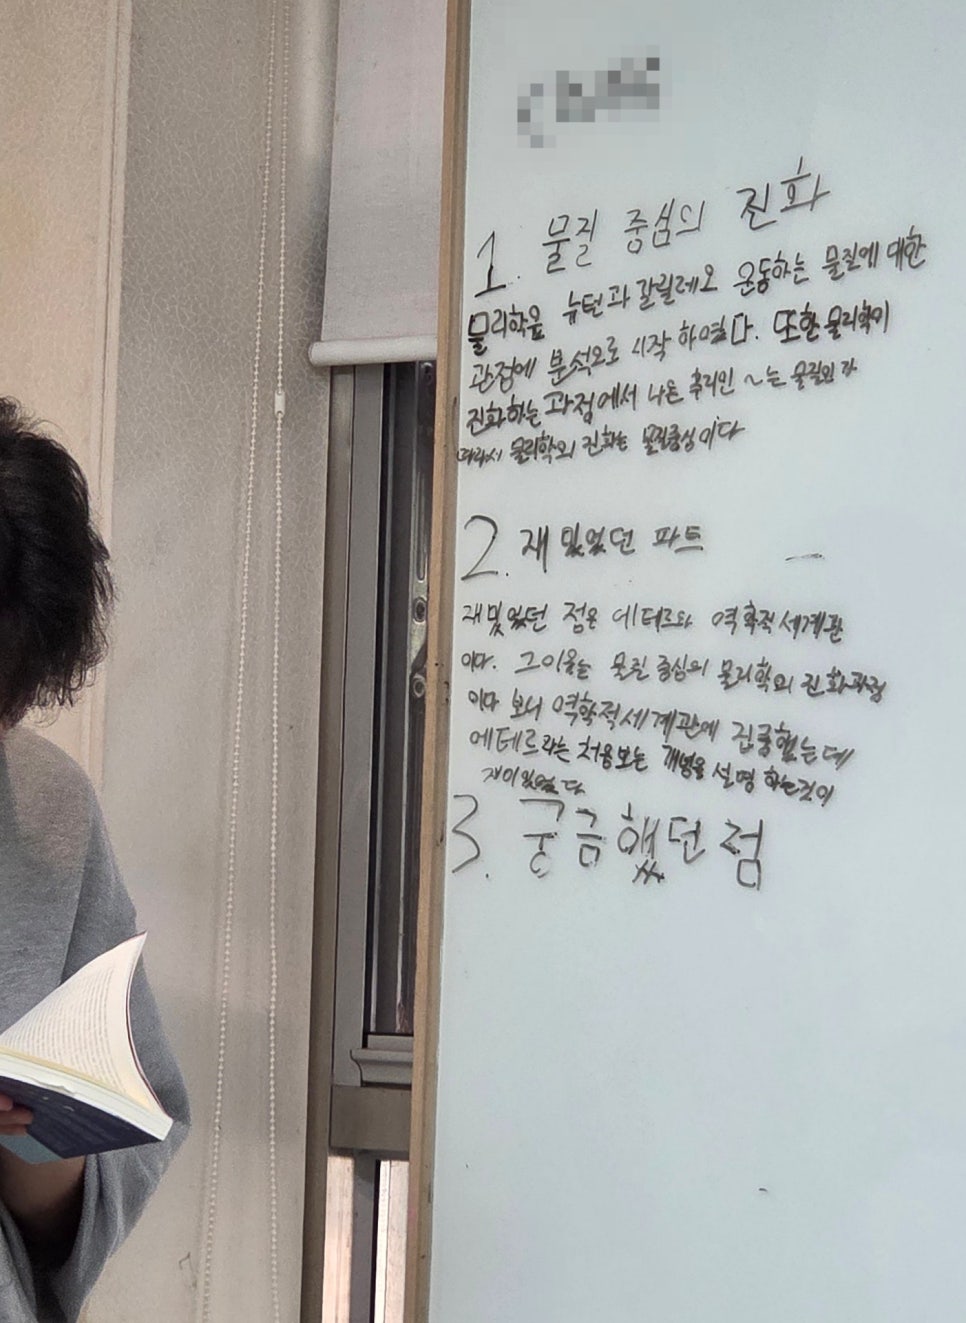 1. 물질 중심의 진화
물리학을 뉴턴과 갈릴레오 운동하는 물질에 대한
관점에 분석으로 시작 하였다. 또한 물리학이
진화하는 과정에서 나온 추리인 ~는 물질인가
따라서 물리학의 진화는 물질중심이다
2. 재밌었던 파트
재밌었던 점은 에테르와 역학적세계관
이다. 그이유는 물질 중심의 물리학의 진화과정
이다 보니 역학적세계관에 집중했는데
에테르라는 처음보는 개념을 설명 하는것이
재미있었다
3. 궁금했던 점